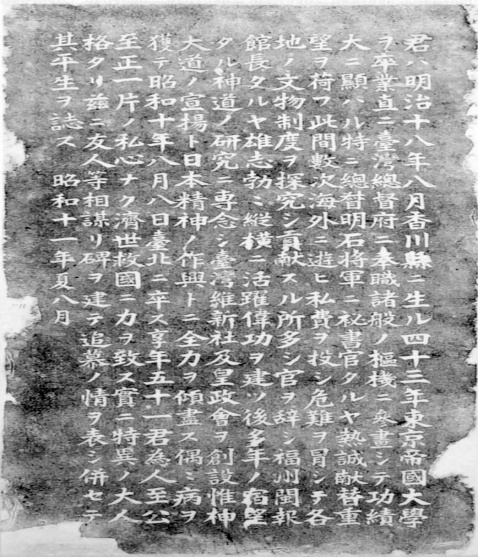 君ハ明治十八年八月香川縣ニ生ル四十三年東京帝國大學
ヲ卒業直ニ臺灣總督府ニ奉職諸般ノ樞機ニ參畫シテ功績
大ニ顯ハル特ニ總督明石將軍ニ祕書官タルヤ熱誠献替重
望ヲ荷フ此間數次海外ニ遊ヒ私費ヲ投シ危難ヲ冒シテ各
地ノ文物制度ヲ探究シ貢献スル所多シ官ヲ辞シ福州閩報
館長タルヤ雄志勃ミ縱橫ニ活躍偉功ヲ建ツ後多年ノ宿望
タル神道ノ研究ニ専念シ臺灣維新社及皇政會ヲ創設惟神
大道ノ宣揚ト日本精神ノ作興トニ全力ヲ傾盡ス偶ミ病ヲ
獲テ昭和十年八月八日臺北ニ卒ス享年五十一君為人至公
至正一片ノ私心ナク濟世救國ニ力ヲ致ス實ニ特異ノ大人
格タリ茲ニ友人等相謀リ碑ヲ建テ追慕ノ情ヲ表シ併セテ
其平生ヲ誌ス 昭和十一年夏八月